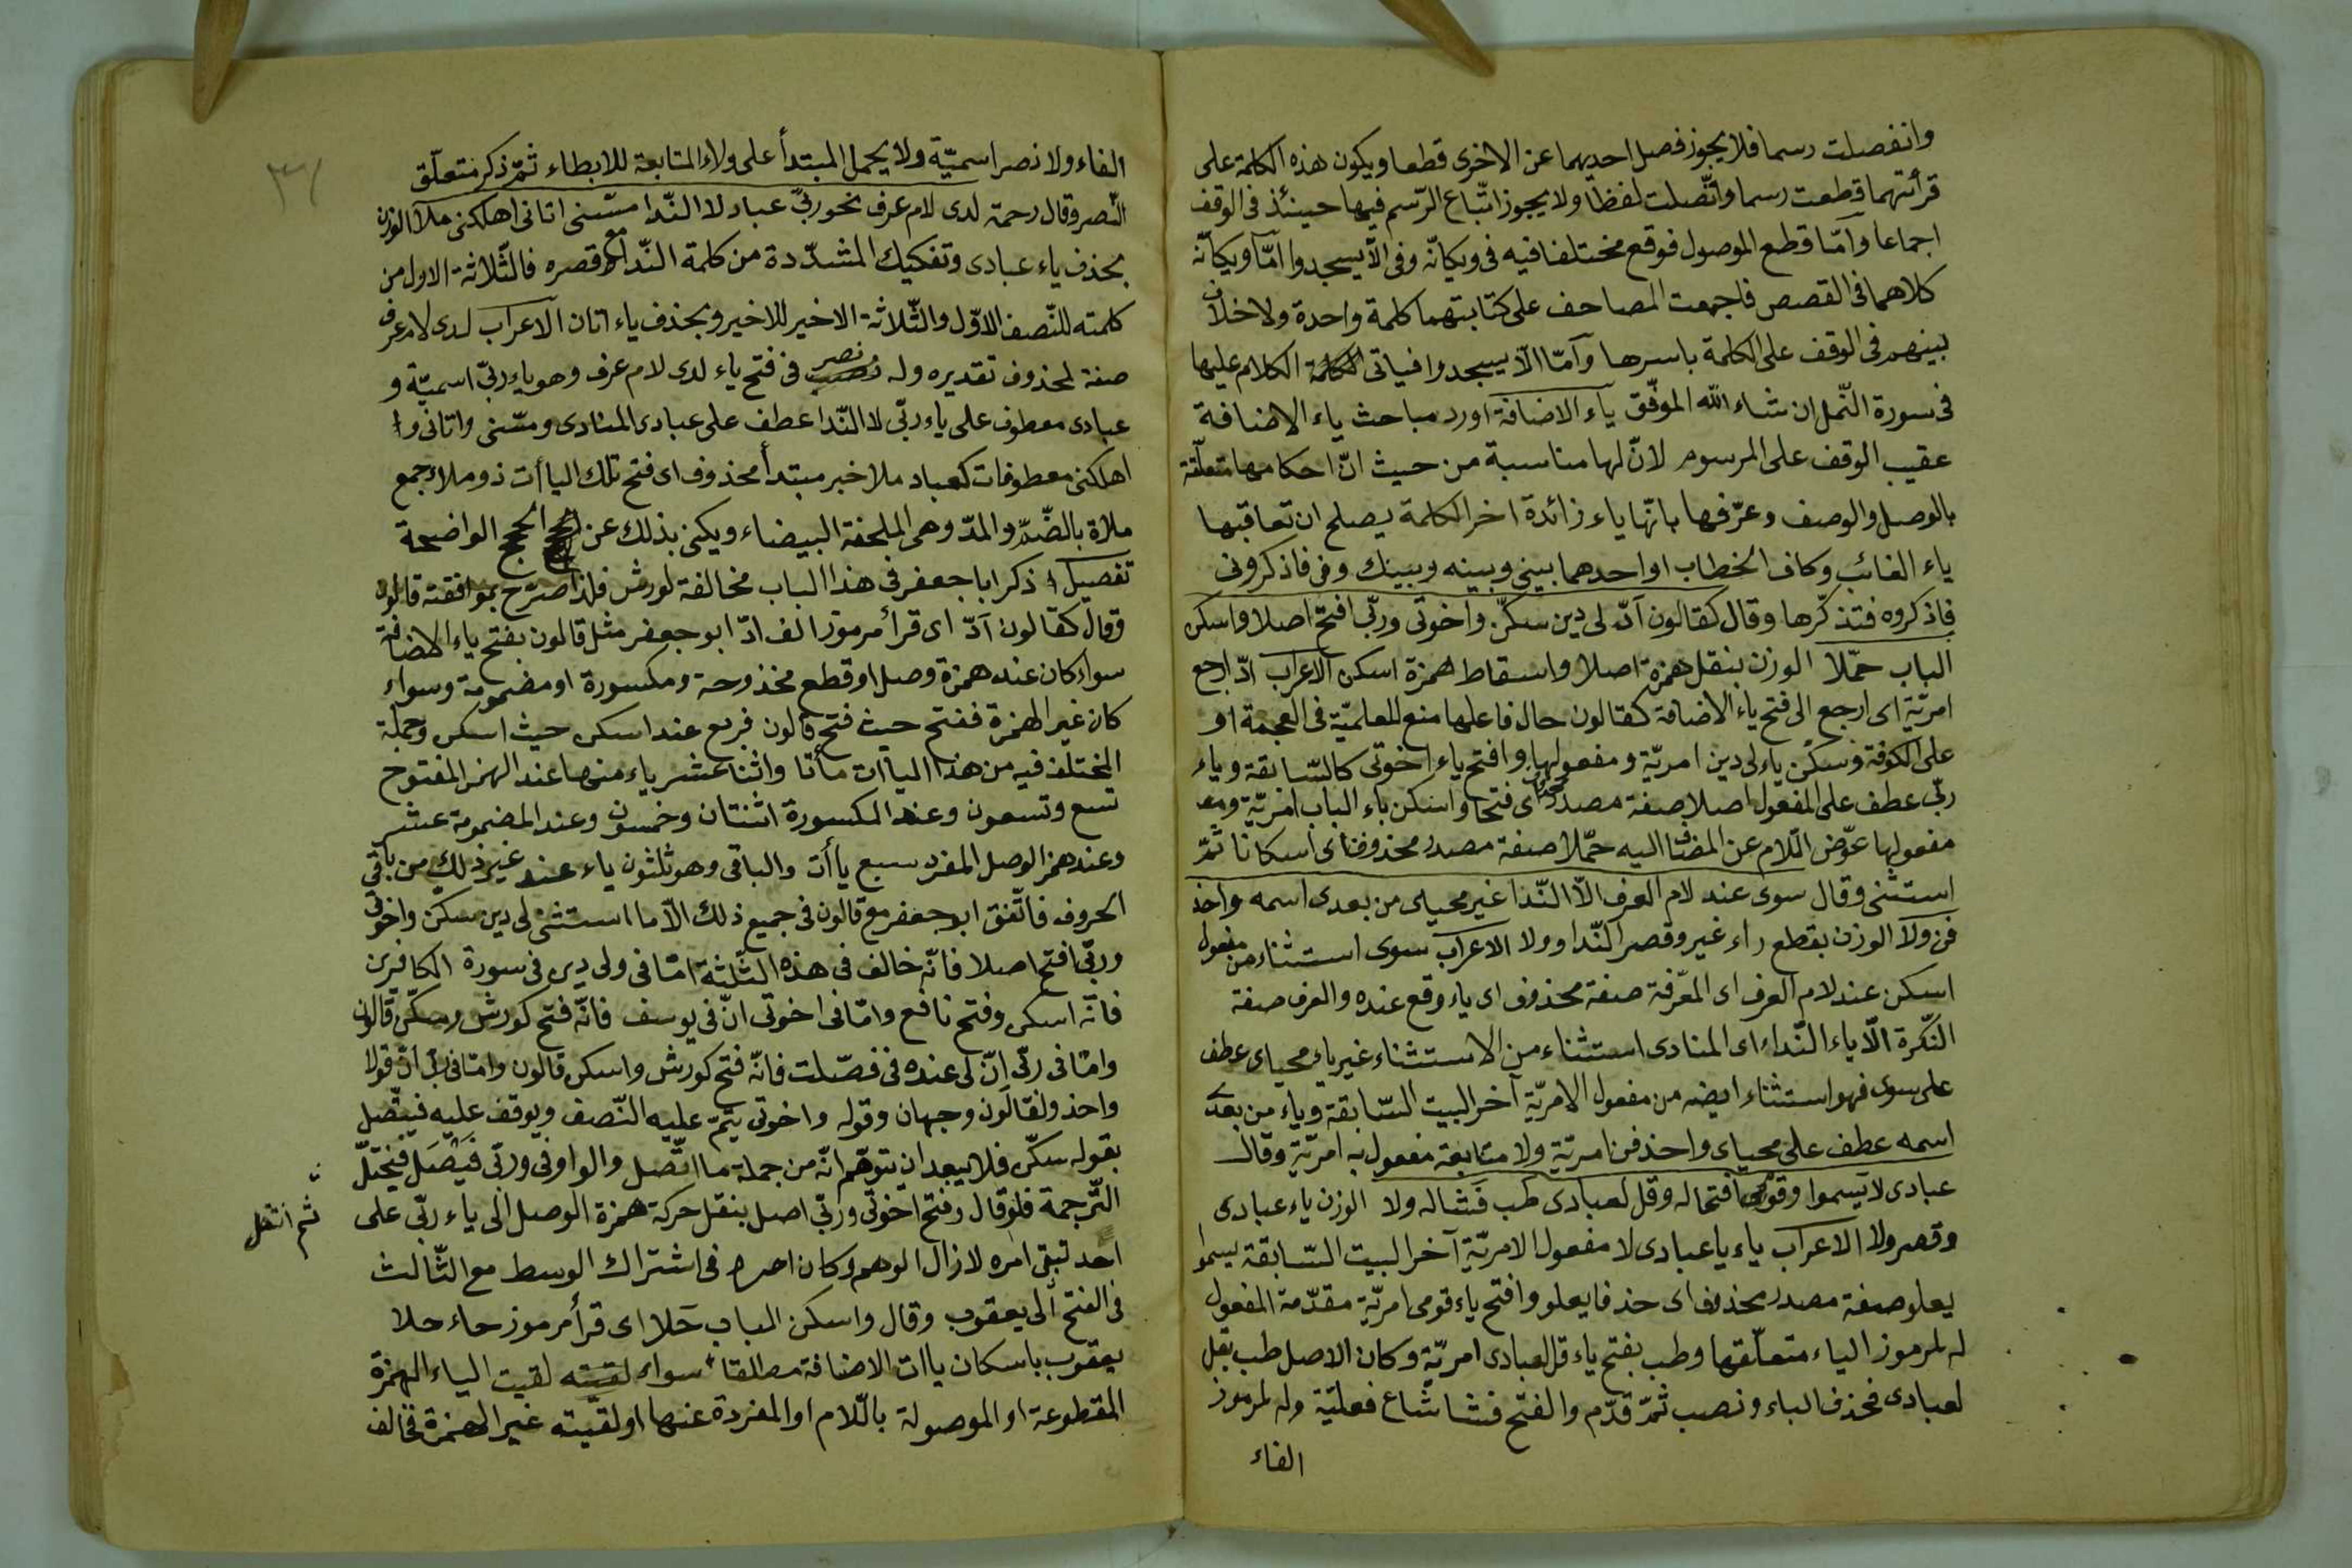 وانفصلت رسما فلا يجوز فصل احديهما عن الاخرى قطعا ويكون هذه الكلمة على
قرأتهما قطعت رسما واتّصلت لفظا ولا يجوز اتّباع الرّسم فيها حينئذ فى الوقف
اجماعا وامّا قطع الموصول فوقع مختلفا فيه فى ويكانّه وفى الّا يسجدوا امّا ويكانّه
كلاهما فى القصص فاجمعت المصاحف على كتابتهما كلمة واحدة ولا خلاف
بينهم فى الوقف على الكلمة باسرها وامّا الّا يسجدوا فياتى الكلام عليها
فى سورة النّمل ان شاء الله الموفّق ياء الاضافة اورد مباحث ياء الاضافة
عقيب الوقف على المرسوم لانّ لها مناسبة من حيث انّ احكامها متعلّقة
بالوصل والوصف وعرّفها بانّها ياء زائدة اخر الكلمة يصلح ان تعاقبها
ياء الغائب وكاف الخطاب او احدهما بينى وبينه وبينك وفى فاذكرونى
فاذكروه فتذكّرها وقال كقالون آدّ لى دين سكّن واخوتى وربّى افتح اصلا واسكن
الباب حمّلا الوزن بنقل همزة اصلا واسقاط همزة اسكن الاعراب ادّ ارجع
امريّة اى ارجع الى فتح ياء الاضافة كقالون حال فاعلها منع للعلميّة فى العجمة او
على الكوفة وسكّن ياء لى دين امريّة ومفعولها وافتح ياء اخوتى كالسّابقة وياء
ربّى عطف على المفعول اصلا صفة مصدر محذوف اى فتحا واسكن باء الباب امريّة ومع
مفعولها عوّض اللّام عن المضاف اليه حمّلا صفة مصدر محذوف اى اسكانا ثمّ
استثنى وقال سوى عند لام العرف الّا النّدا غير محياى من بعدى اسمه واحذ
فن ولا الوزن بقطع راء غير وقصر النّدا وولا الاعراب سوى استثناء من مفعول
اسكن عند لام العرف اى المعرّفة صفة محذوف اى ياء وقع عنده والعرف صفة
النّكرة الّا ياء النّداء اى المنادى استثناء من الاستثناء غير ياء محياى عطف
على سوى فهو استثناء ايضه من مفعول الامريّة آخر البيت السّابقة وياء من بعدى
اسمه عطف على محياى واحذفن امريّة ولا متابعة مفعول به امريّة وقال
عبادى لا يسموا وقومى افتحا له وقل لعبادى طب فشا له ولا الوزن ياء عبادى
وقصر ولا الاعراب ياء يا عبادى لا مفعول الامريّة آخر البيت السّابقة يسموا
يعلو صفة مصدر محذوف اى حذفا يعلو وافتح ياء قومى امريّة مقدّمة المفعول
له لمرموز الياء متعلّقها وطب بفتح ياء قل لعبادى امريّة وكان الاصل طب بقل
لعبادى فحذف الباء ونصب ثمّ قدّم والفتح فشا شاع فعليّة وله لمرموز
الفاء
الفاء ولا نصر اسميّة ولا يحمل المبتدأ على ولاء المتابعة للابطاء ثمّ ذكر متعلّق
النّصر وقال رحمة لدى لام عرف نحو ربّى عباد لا النّدا مسّنى اتانى اهلكنى ملا الوزن
بحذف ياء عبادى وتفكيك المشدّدة من كلمة النّدا مع قصره فالثّلاثة الاول من
كلمته للنّصف الاوّل والثّلاثة الاخير للاخير وبحذف ياء اتان الاعراب لدى لام عرف
صفة لمحذوف تقديره وله نصر فى فتح ياء لدى لام عرف وهو ياء ربّى اسميّة و
عبادى معطوف على ياء ربّى لا النّدا عطف على عبادى المنادى ومسّنى واتانى و
اهلكنى معطوفات كعباد ملا خبر مبتدأ محذوف اى فتح تلك الياأت ذو ملاء جمع
ملاة بالضّم والمدّ وهى الملحفة البيضاء ويكنى بذلك عن الحجج الواضحة
تفصيل ذكر ابا جعفر فى هذا الباب مخالفة لورش فلذا صرّح بموافقة قالون
وقال كقالون آدّ اى قرأ مرموز الف ادّ ابو جعفر مثل قالون بفتح ياء الاضافة
سواء كان عند همزة وصل او قطع مفتوحة ومكسورة او مضمومة وسواء
كان غير الهمزة ففتح حيث فتح قالون فربع عند اسكن حيث اسكن وجملة
المختلف فيه من هذا الياآت مأتا واثنا عشر ياء منها عند الهمز المفتوح
تسع وتسعون وعند المكسورة اثنتان وخمسون وعند المضمومة عشر
وعند همز الوصل المفرد سبع ياأت والباقى وهو ثلثون ياء عند غير ذلك من باقى
الحروف فاتّفق ابو جعفر مع قالون فى جميع ذلك الّا ما استثنى لى دين سكن واخوتى
وربّى افتح اصلا فانّه خالف فى هذه الثّلثة امّا فى ولى دين فى سورة الكافرين
فانّه اسكن وفتح نافع وامّا فى اخوتى انّ فى يوسف فانّه فتح كورش وسكّن قالون
وامّا فى ربّى انّ لى عنده فى فصّلت فانّه فتح كورش واسكن قالون وامّا فى ربّى انّ قولا
واحد ولقالون وجهان وقوله واخوتى يتمّ عليه النّصف ويوقف عليه فيتّصل
بقوله سكّن فلا يبعد ان يتوهّم انّه من جملة ما اتّصل والواو فى وربّى فيصل فيختلّ
التّرجمة فلو قال وفتح اخوتى وربّى اصل بنقل حركة همزة الوصل الى ياء ربّى على
ثم انتقل
احد تبقى امره لازال الوهم وكان اصرح فى اشتراك الوسط مع الثّالث
فى الفتح الى يعقوب وقال واسكن الباب حملا اى قرأ مرموز حاء حلا
يعقوب باسكان ياات الاضافة مطلقا سواء لقيت الياء الهمزة
المقطوعة او الموصولة باللّام او المفردة عنها او لقيته غير الهمزة فخالف